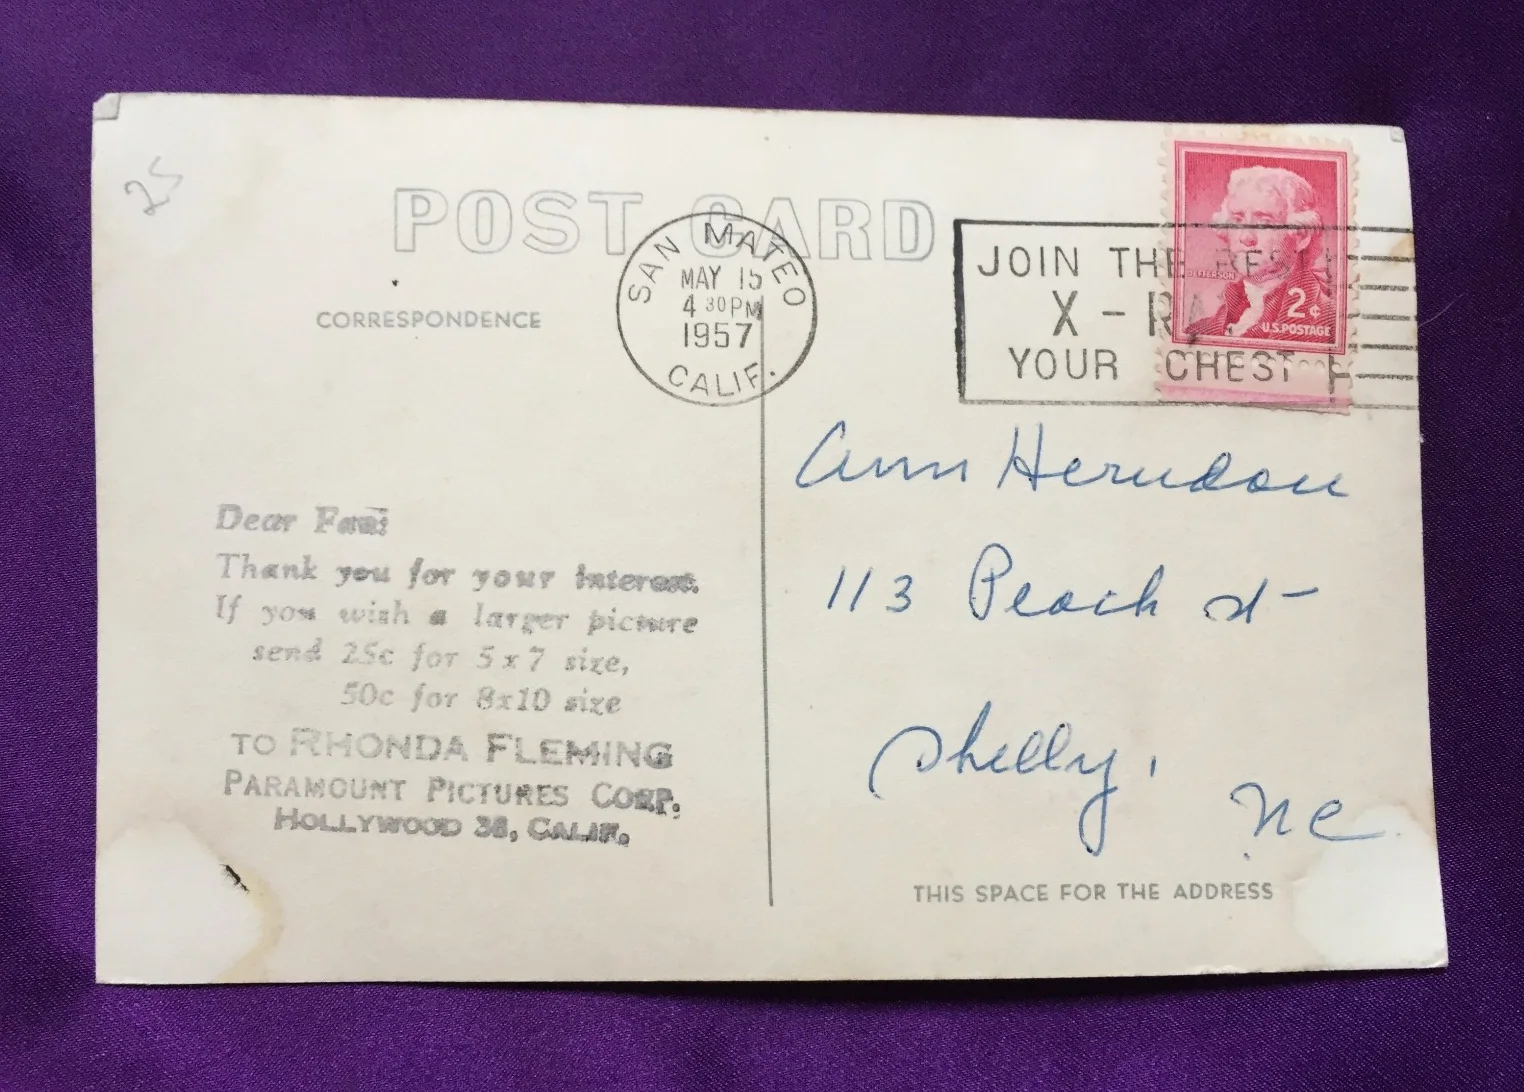 25
POST CARD
CORRESPONDENCE
SAN MATEO
MAY 15
4 30 PM
1957
CALIF.
JOIN THE REST
X-RAY
YOUR CHEST
JEFFERSON
2¢
U.S. POSTAGE
Dear Fan:
Thank you for your interest.
If you wish a larger picture
send 25c for 5x7 size,
50c for 8x10 size
TO RHONDA FLEMING
PARAMOUNT PICTURES CORP.
HOLLYWOOD 38, CALIF.
Ann Herndon
113 Peach St
Shelly,
NC
THIS SPACE FOR THE ADDRESS